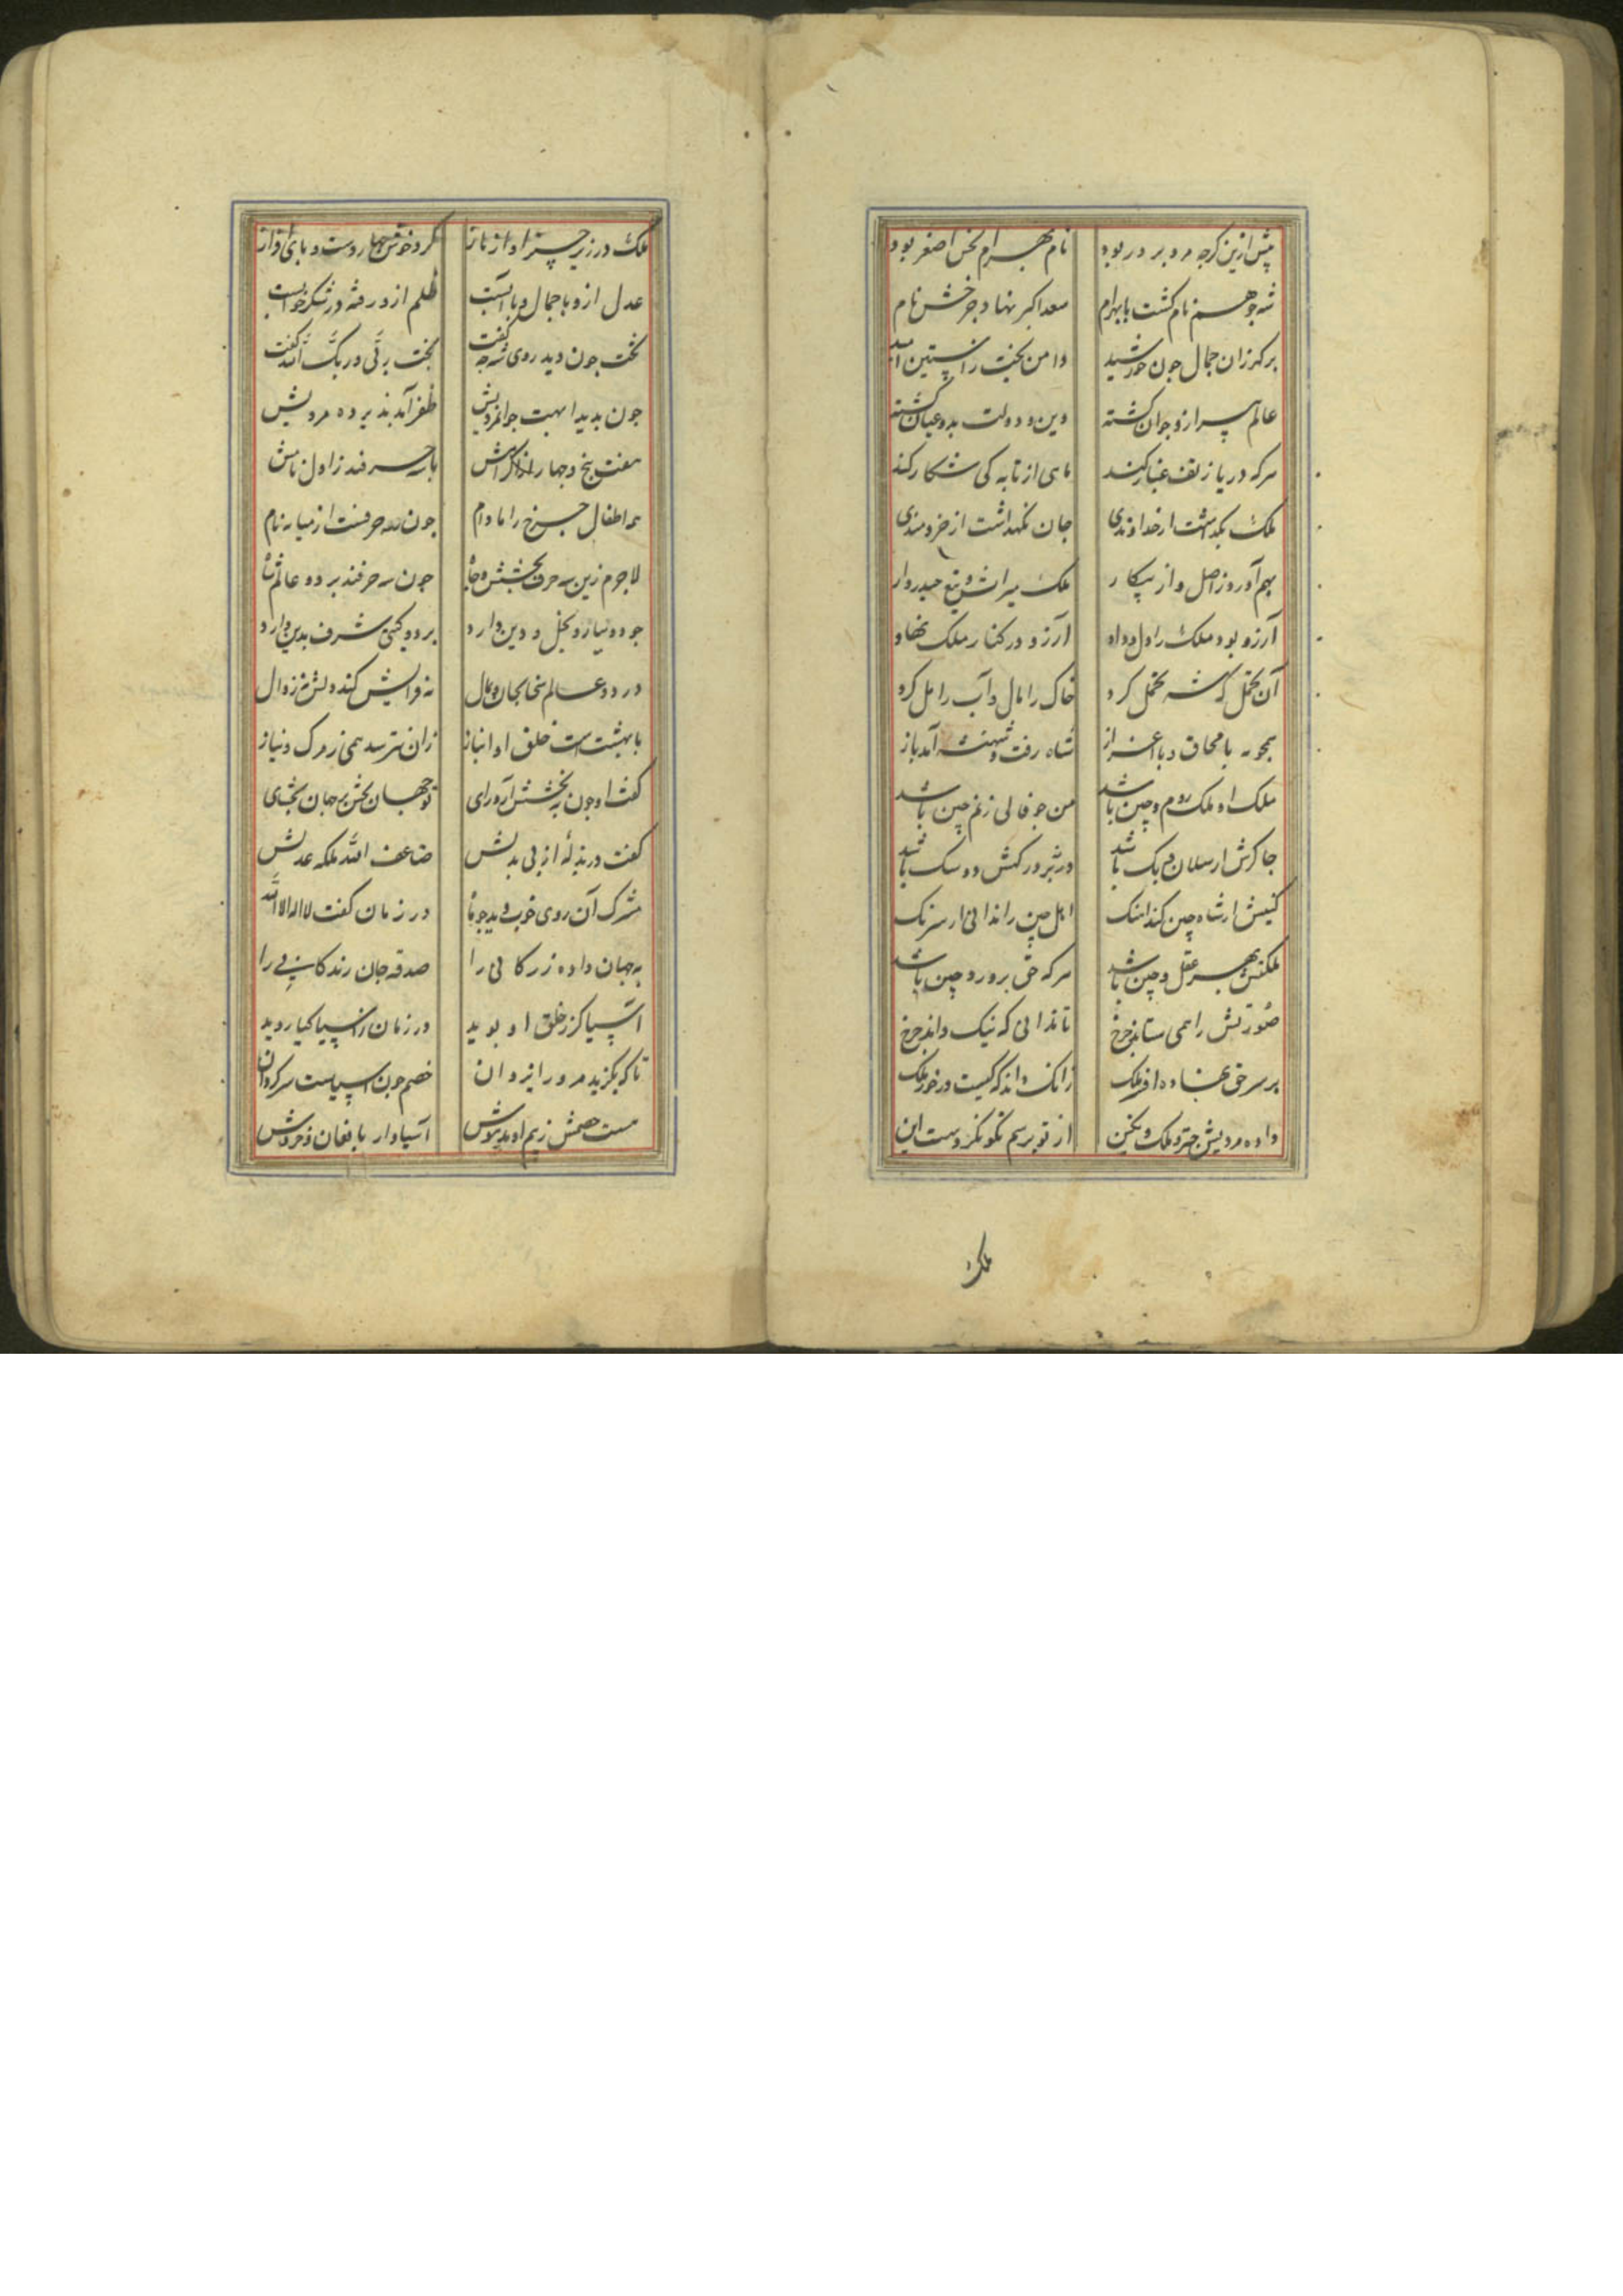 پیش ازین کرچه مرد بر در بود نام بهرام نحس اصغر بود
شه چو هم نام کشت با بهرام سعد اکبر نهاد چرخش نام
برکه زان جمال جون خورشید دامن بخت را آستین امید
عالم پیر ازو جوان کشته دین و دولت بدو عیان کشته
هرکه دریا ز تف غبار کند ماهی از تابه کی شکار کند
ملک بکذاشت از خداوندی جان نکهداشت از خردمندی
بهم آورد ز اصل و از پیکار ملک میراث و تیغ حیدروار
آرزو بود ملک را دل و داد آرزو در کنار ملک نهاد
آن تحمل که شه تحمل کرد خاک را مال و آب را مل کرد
همچو مه با محاق و با اعزاز شاه رفت و شهنشه آمد باز
ملک او ملک روم و چین باشد من جو فالی زنم چنین باشد
جاکرش ارسلان و بک باشد در بر درکهش دو سک باشد
کینش ار شاه چین کند آهنک اهل چین را ندانی از سرنک
ملکتش بهر عقل و دین باشد هرکه حق پرورد چنین باشد
صورتش را همی ستاند چرخ تا ندانی که نیک داند چرخ
بر سر حق نهاده افر ملک زانک داند که کیست درخور ملک
داده مردیش چتر و ملک و نکین از تو پرسم نکو نکردست این
ملک
ملک در زیر چتر او از ناز کرد خوش چهار دست و پای دراز
عدل ازو با جمال و با آبست ظلم ازو رفته در شکر خوابست
تخت جون دید روی شه جه کفت بخت بر تی در بک الله کفت
جون بدید ابهت جوانمردیش ظفر آمد پذیره مردیش
هفت پنج و چهار ز اکرامش با سه حرفند ز اول نامش
همه اطفال چرخ را مادام جون سه حرفست از میانه نام
لاجرم زین سه حرف بخشش و جاه جون سه حرفند بر دو عالم شاه
جود و نیارد و بخل و دین دارد بر دو کیتی شرف بدین دارد
در دو عالم سخا بجان و بمال نه فرامش کندش نه زوال
با بهشت است خلق او انباز زان نترسد همی ز مرک و نیاز
کفت او جون به بخشش آرد رای تو جهان بخش بر جهان بخشای
کفت در بذله از پی بدلش ضاعف الله ملکه عدلش
مشرک آن روی خوب دید جو ماه در زمان کفت لا اله الا الله
به جهان داده زر کانی را صدقه جان زندکانی را
آسیا کز خلق او بوید در زمان ز آسیا کیا روید
تا که بکزید مرورا یزدان خصم جون آسیاست سرکردان
هست خصمش ز بیم او مدهوش آسیاوار با فغان و خروش